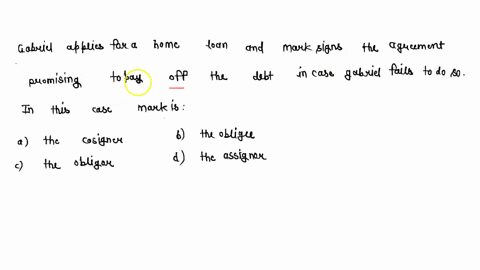 Gabriel applies for a home loan and mark signs the agreement
promising to pay off the debt in case gabriel fails to do so.
In this case mark is :
a) the cosigner b) the obligee
c) the obligor d) the assignor